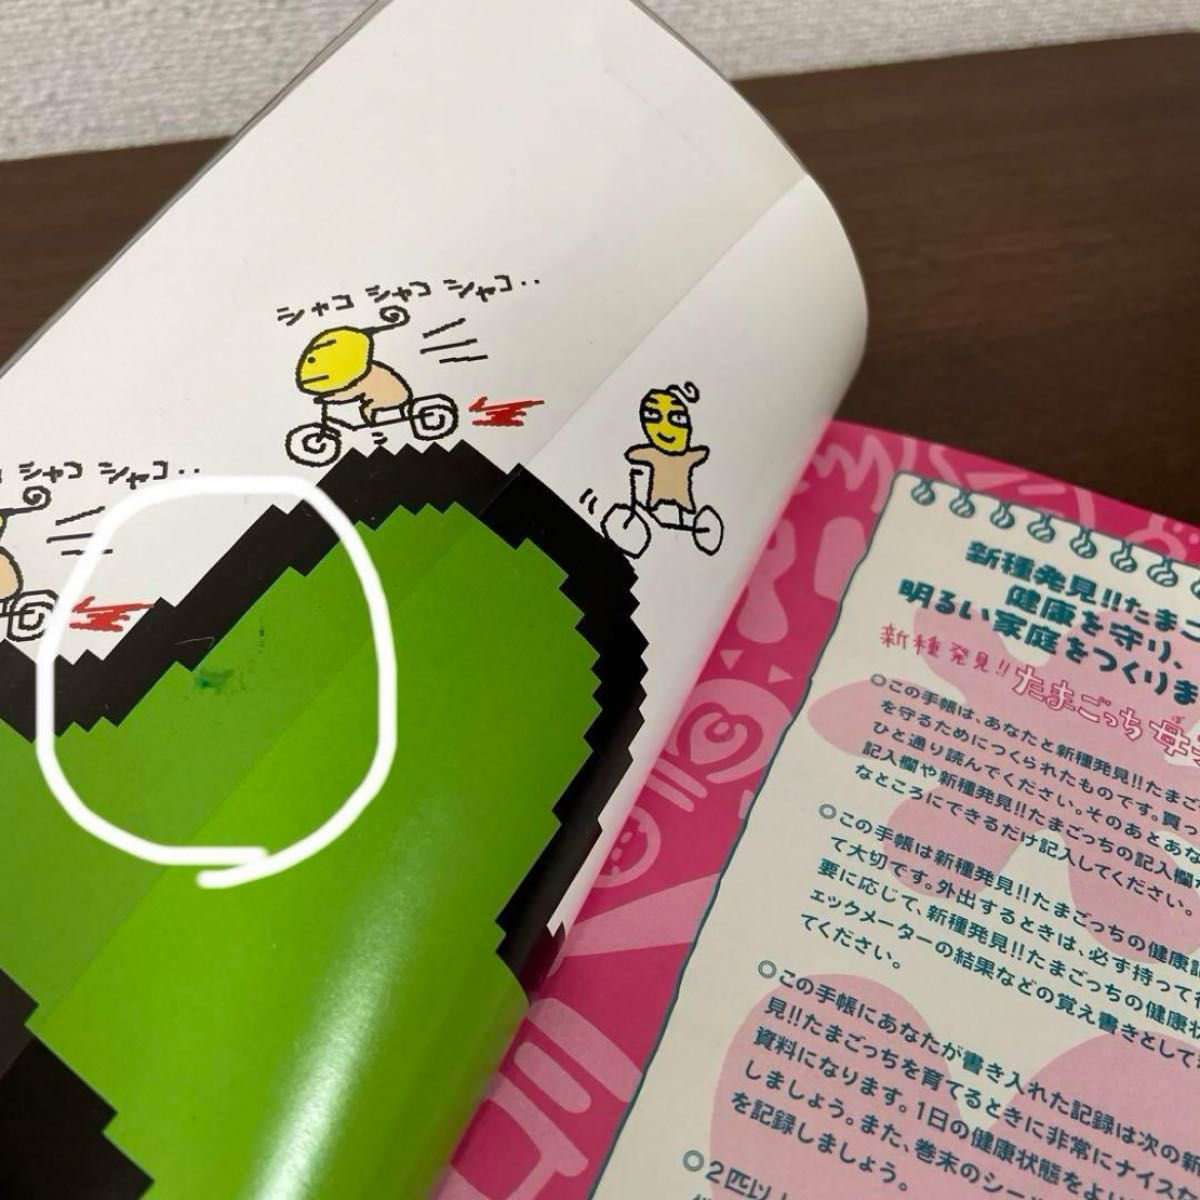 シャコ シャコ シャコ‥
シャコ シャコ‥
新種発見!!たまご
健康を守り、
明るい家庭をつくりま
新種発見!!たまごっち母
◎この手帳は、あなたと新種発見!!たまご
を守るためにつくられたものです。買っ
ひと通り読んでください。そのあとあな
記入欄や新種発見!!たまごっちの記入欄な
なところにできるだけ記入してください。
◎この手帳は新種発見!!たまごっちの健康
て大切です。外出するときは、必ず持って
要に応じて、新種発見!!たまごっちの健康状
ェックメーターの結果などの覚え書きとして
てください。
◎この手帳にあなたが書き入れた記録は次の新
見!!たまごっちを育てるときに非常にナイスな
資料になります。1日の健康状態をよ
しましょう。また、巻末のシー
を記録しましょう。
◎2匹以